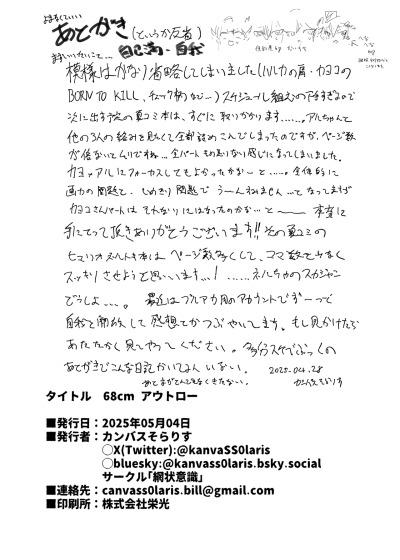 よまなくていい
あとがき(というか反省)
自己満・自我
模様はかなり省略してしまいました(ハルカの肩・カヨコの
BORN TO KILL、チェック柄など…)スケジュール組むの下手すぎるので
次に出す予定の夏コミ本は、すぐに取りかかります……。アルちゃんと
他の3人の絡みを見たくて全部詰めこんでしまったのですが、ページ数
が足りないとムリですね…全パートもの足りない感じになってしまいました。
カヨ×アルにフォーカスしてもよかったかな…と……。全体的に
画力の問題で、しめきり問題で うーん ねません…てなってますが
カヨコさんパートは それなりにはなったのかな…と 本当に
手にとって頂きありがとうございます!! その夏コミの
ヒマリ ネル トキ本は、ページ数多くして、コマ数 少なく
スッキリさせようと思います…!……ネルちゃのスカジャン
どうしよ…。最近はブルアカ用のアカウントでずーっと
自我を開放して感想とかつぶやいてます。もし見かけたら
あたたかく見てやってください。多分スケブっくの
あとがきでこんな日記かいてる人いない。 2025.04.28
タイトル 68cm アウトロー
■発行日:2025年05月04日
■発行者:カンバスそらりす
○X(Twitter):@kanvaSS0laris
○bluesky:@kanvass0laris.bsky.social
サークル「網状意識」
■連絡先:canvass0laris.bill@gmail.com
■印刷所:株式会社栄光